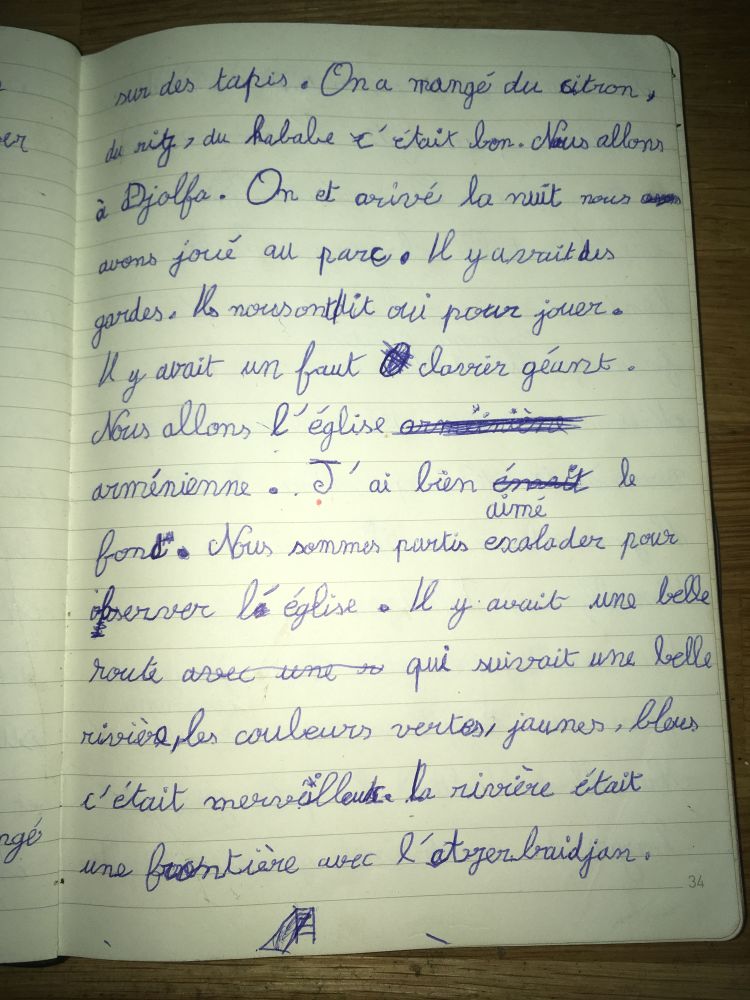 er
ngé
sur des tapis. On a mangé du citron,
du ritz, du kababe c'était bon. Nous allons
à Djolfa. On et arivé la nuit nous
avons joué au parc. Il y avait des
gardes. Ils nous ont dit oui pour jouer.
Il y avait un faut clavier géant.
Nous allons l'église arménienne
arménienne. J'ai bien le
aimé
font. Nous sommes partis exalader pour
observer l'église. Il y avait une belle
route avec une r qui suivait une belle
rivière, les couleurs vertes, jaunes, bleus
c'était merveilleux. La rivière était
une frontière avec l'atzerbaidjan.
34